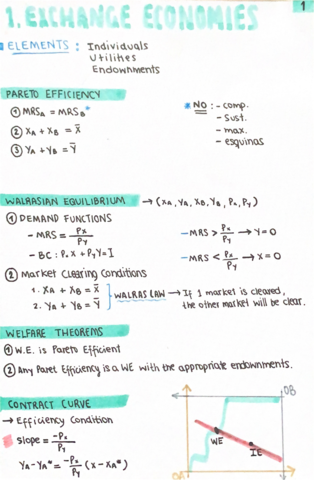 1
1. EXCHANGE ECONOMIES
ELEMENTS : Individuals
Utilities
Endownments
PARETO EFFICIENCY
① MRS_A = MRS_B*
② X_A + X_B = X̄
③ Y_A + Y_B = Ȳ
* NO : - comp.
- Sust.
- max.
- esquinas
WALRASIAN EQUILIBRIUM → (X_A, Y_A, X_B, Y_B, P_x, P_y)
① DEMAND FUNCTIONS
- MRS = P_x/P_y
- BC: P_x X + P_y Y = I
- MRS > P_x/P_y → Y=0
- MRS < P_x/P_y → X=0
② Market Clearing Conditions
1. X_A + X_B = X̄
2. Y_A + Y_B = Ȳ
WALRAS LAW → If 1 market is cleared,
the other market will be clear.
WELFARE THEOREMS
① W.E. is Pareto Efficient
② Any Paret Efficiency is a WE with the appropriate endownments.
CONTRACT CURVE
→ Efficiency Condition
Slope = -P_x/P_y
Y_A - Y_A* = -P_x/P_y (X - X_A*)
OB
WE
IE
OA